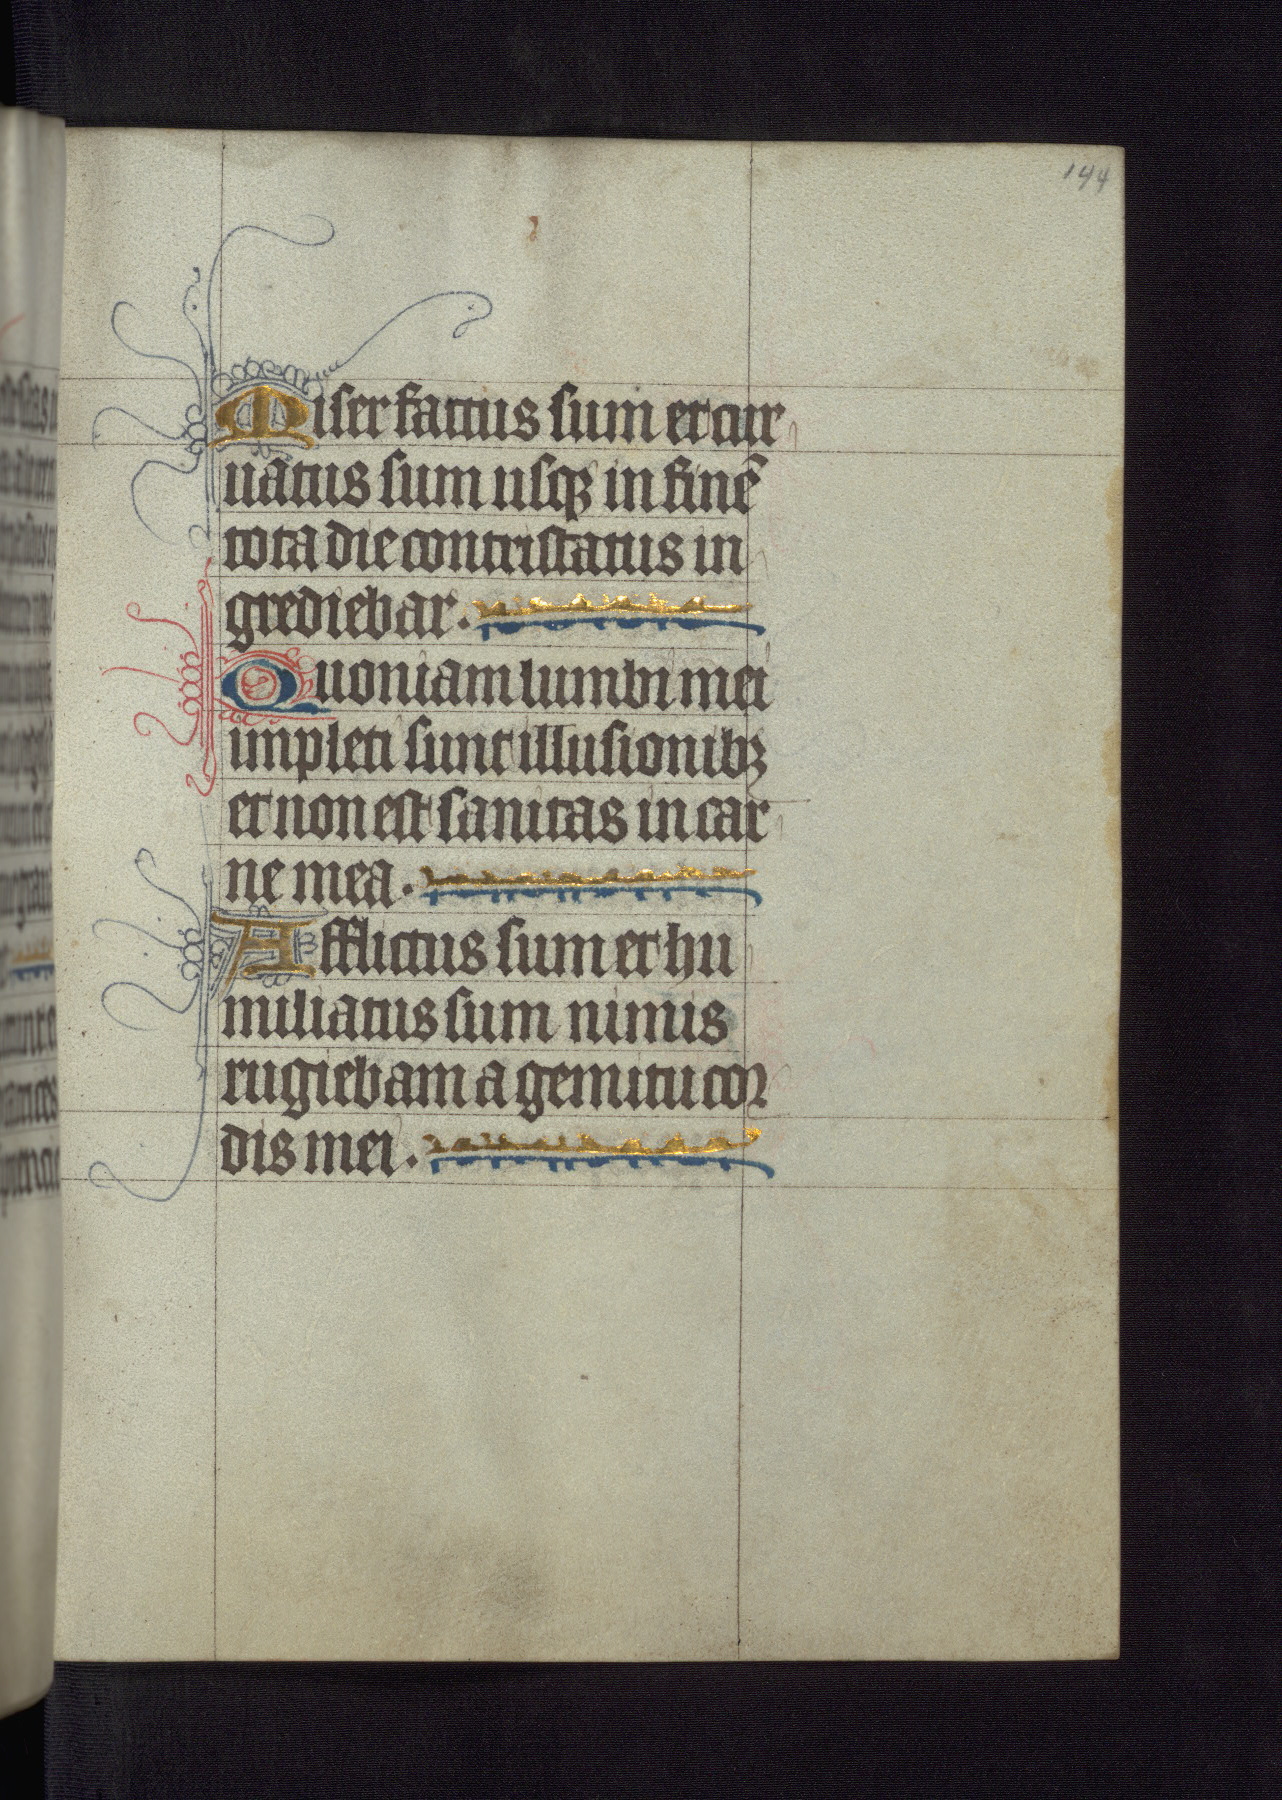 144
Miser factus sum et cur
uatus sum usqꝫ in finē
tota die contristatus in
grediebar.
Quoniam lumbi mei
impleti sunt illusionibꝫ
et non est sanitas in car
ne mea.
Afflictus sum et hu
miliatus sum nimis
rugiebam a gemitu cor
dis mei.